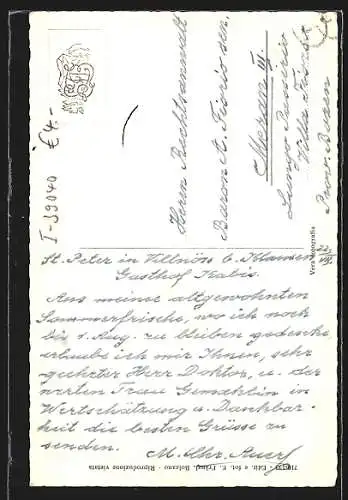 St. Peter in Villnöss b. Klausen
Gasthof Kabis.
22/VII.
Aus meiner altgewohnten
Sommerfrische, wo ich noch
bis 1. Aug. zu bleiben gedenke,
erlaube ich mir Ihnen, sehr
geehrter Herr Doktor, u. der
werten Frau Gemahlin in
Wertschätzung u. Dankbar-
keit die besten Grüsse zu
senden.
M. Chr. Auer
Herrn Rechtsanwalt
Baron A. Fioresi den.
Meran III.
Lungo Passirio
Villa
Prov. Bozen
Vera fotografia
Ediz. e fot. E. Bolzano - Riproduzione vietata
I-39040 €4.-